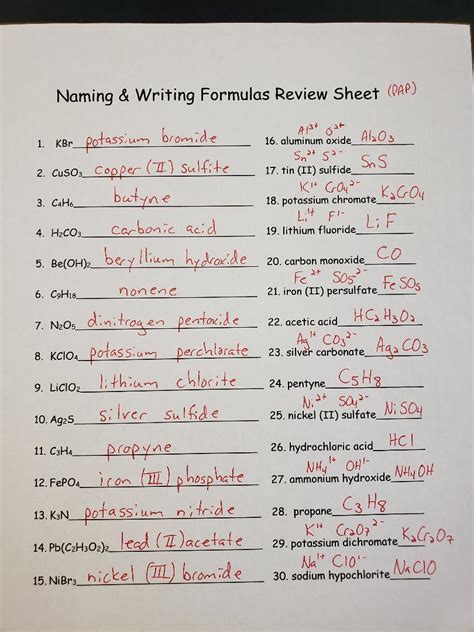 Naming & Writing Formulas Review Sheet (PAP)
1. KBr potassium bromide
2. CuSO₃ copper (II) sulfite
3. C₄H₆ butyne
4. H₂CO₃ carbonic acid
5. Be(OH)₂ beryllium hydroxide
6. C₉H₁₈ nonene
7. N₂O₅ dinitrogen pentoxide
8. KClO₄ potassium perchlorate
9. LiClO₂ lithium chlorite
10. Ag₂S silver sulfide
11. C₃H₄ propyne
12. FePO₄ iron (III) phosphate
13. K₃N potassium nitride
14. Pb(C₂H₃O₂)₂ lead (II) acetate
15. NiBr₃ nickel (III) bromide
Al³⁺ O²⁻
16. aluminum oxide Al₂O₃
Sn²⁺ S²⁻
17. tin (II) sulfide SnS
K¹⁺ CrO₄²⁻
18. potassium chromate K₂CrO₄
Li¹⁺ F¹⁻
19. lithium fluoride LiF
20. carbon monoxide CO
Fe²⁺ SO₅²⁻
21. iron (II) persulfate FeSO₅
22. acetic acid HC₂H₃O₂
Ag¹⁺ CO₃²⁻
23. silver carbonate Ag₂CO₃
24. pentyne C₅H₈
Ni²⁺ SO₄²⁻
25. nickel (II) sulfate NiSO₄
26. hydrochloric acid HCl
NH₄¹⁺ OH¹⁻
27. ammonium hydroxide NH₄OH
28. propane C₃H₈
K¹⁺ Cr₂O₇²⁻
29. potassium dichromate K₂Cr₂O₇
Na¹⁺ ClO¹⁻
30. sodium hypochlorite NaClO